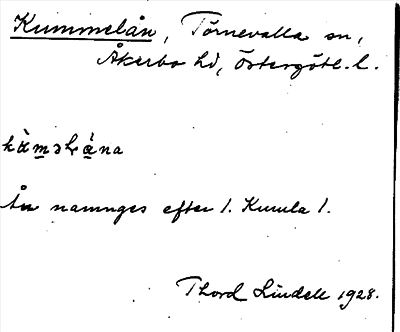 Kummelån, Törnevalla sn,
Åkerbo hd, Östergötl. l.
Ån namnges efter l. Kumla l.
Thord Lindell 1928.